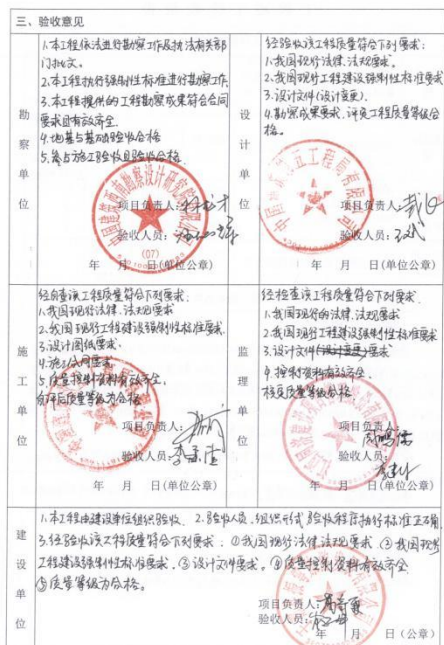 三、验收意见
勘察单位
1.本工程依法进行勘察工作及执法有关部
门批文。
2.本工程执行强制性标准进行勘察工作
3.本工程提供的工程勘察成果符合合同
要求且有效齐全
4.地基与基础验收合格
5.参与施工验收且验收合格
项目负责人:
验收人员:
(07)
年 月 日(单位公章)
设计单位
经验收该工程质量符合下列要求:
1.我国现行法律、法规要求
2.我国现行工程建设强制性标准要求
3.设计文件(设计变更)
4.勘察成果要求,评定工程质量等级合
格。
项目负责人:
验收人员:
年 月 日(单位公章)
施工单位
经自查该工程质量符合下列要求
1.我国现行法律、法规要求
2.我国现行工程建设强制性标准要求
3.设计图纸要求
4.施工合同要求
5.质量控制资料有效齐全
自评质量等级为合格
项目负责人:
验收人员:
年 月 日(单位公章)
监理单位
经检查该工程质量符合下列要求
1.我国现行的法律、法规要求
2.我国现行工程建设强制性标准要求
3.设计文件(设计变更)要求
4.控制资料有效齐全
核定质量等级合格
项目负责人:
验收人员:
年 月 日(单位公章)
建设单位
1.本工程由建设单位组织验收 2.验收人员、组织形式、验收程序、执行标准正确
3.经验收该工程质量符合下列要求 ①我国现行法律、法规要求 ②我国现行
工程建设强制性标准要求。③设计文件要求。④质量控制资料有效齐全
⑤质量等级为合格。
项目负责人:
验收人员:
年 月 日(公章)